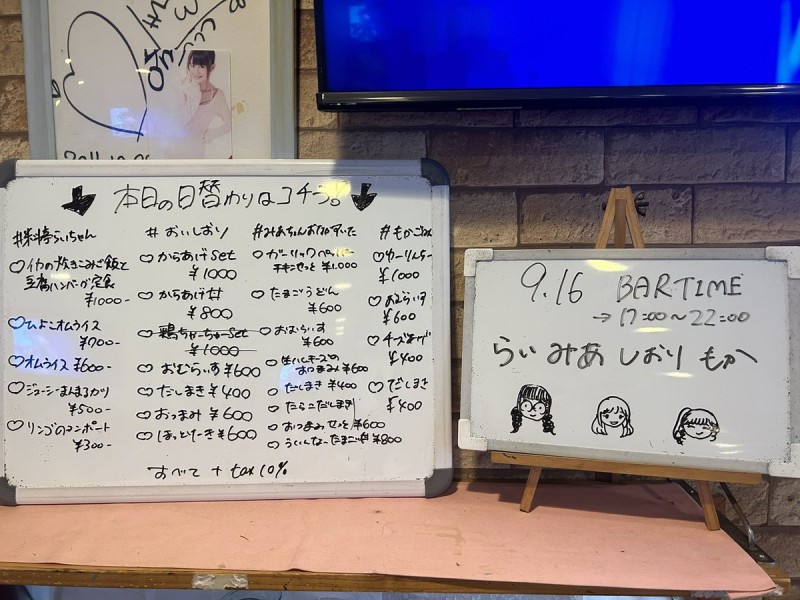 本日の日替わりはコチラ!
#米将らいちゃん
♡イカの炊きこみご飯と
豆腐ハンバーグ定食
¥1000-
♡ひよこオムライス
¥700-
♡オムライス ¥600-
♡ジューシーまんまるカツ
¥500-
♡リンゴのコンポート
¥300-
#おいしおり
♡からあげset
¥1000
♡からあげ丼
¥800
♡鶏ちゃーちゅーset
¥1000
♡おむらいす ¥600
♡だしまき ¥400
♡おつまみ ¥600
♡ほっとけーき ¥600
#みあちゃんおなかすいた
♡ガーリックペッパー
チキンせっと ¥1.000
♡たまごうどん
¥600
♡おむらいす
¥600
おつまみ ¥600
♡だしまき ¥400
♡たらこだしまき
♡おつまみせっと ¥600
♡ういんなーたまご丼 ¥800
#もかごはん
♡ゆーりんちー
¥1000
♡おむらいす
¥600
♡チーズあげ
¥400
♡だしまき
¥400
すべて + tax 10%
9.16 BARTIME
→17:00～22:00
らい みあ しおり もか